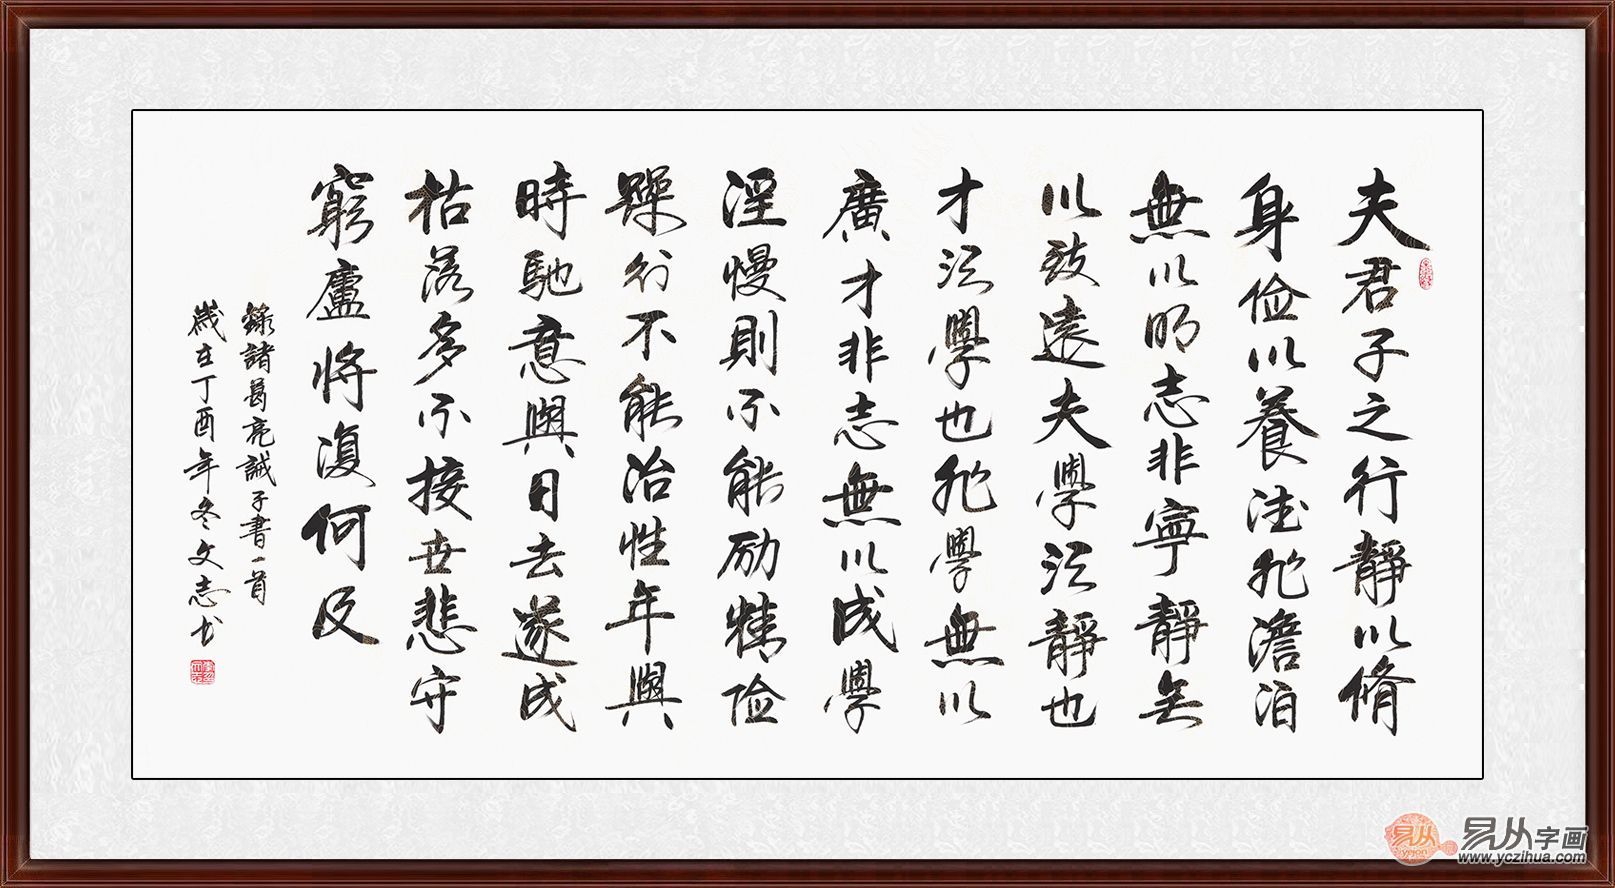 夫君子之行靜以脩
身俭以養德非澹泊
無以明志非寧靜无
以致遠夫學须靜也
才须學也非學無以
廣才非志無以成學
淫慢則不能励精险
躁行不能冶性年與
時馳意與日去遂成
枯落多不接世悲守
窮廬將復何及
錄諸葛亮誡子書一首
歲在丁酉年冬文志书
易从
易从字画
www.yczihua.com